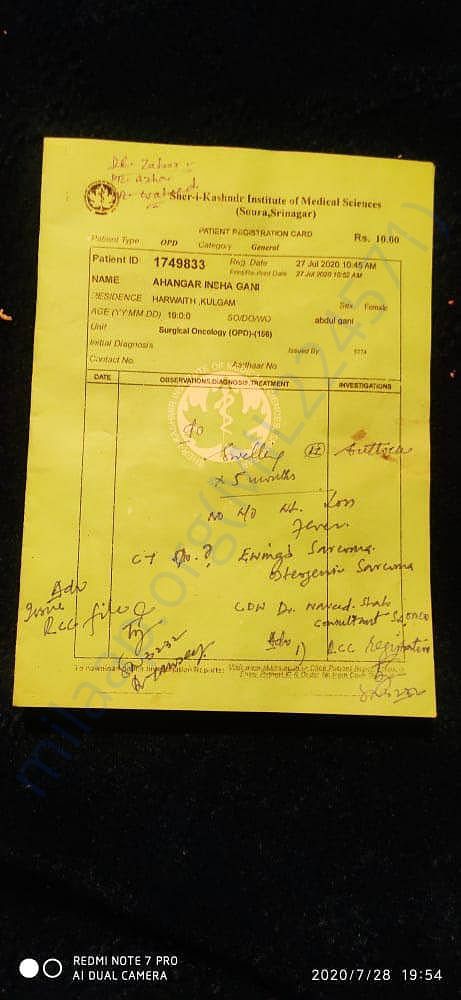 Sher-i-Kashmir Institute of Medical Sciences
(Soura,Srinagar)
PATIENT REGISTRATION CARD
Rs. 10.00
Patient Type OPD Category General
Patient ID 1749833 Reg. Date 27 Jul 2020 10:45 AM
27 Jul 2020 10:52 AM
NAME AHANGAR INSHA GANI
RESIDENCE HARWAITH ,KULGAM Sex Female
AGE (YY:MM:DD) 19:0:0 SO/DO/WO abdul gani
Unit Surgical Oncology (OPD)-(156)
Initial Diagnosis Issued By
Contact No. Aadhaar No
DATE OBSERVATIONS,DIAGNOSIS,TREATMENT INVESTIGATIONS
Swelling Buttock
x 5 months
No H/O Wt. Loss
Fever.
CT ? Ewing's Sarcoma
Osteogenic Sarcoma
Adv
RCC file
Dr. Naveed Shah
consultant
Adv
1) RCC registration
milaap.org
REDMI NOTE 7 PRO
AI DUAL CAMERA
2020/7/28 19:54